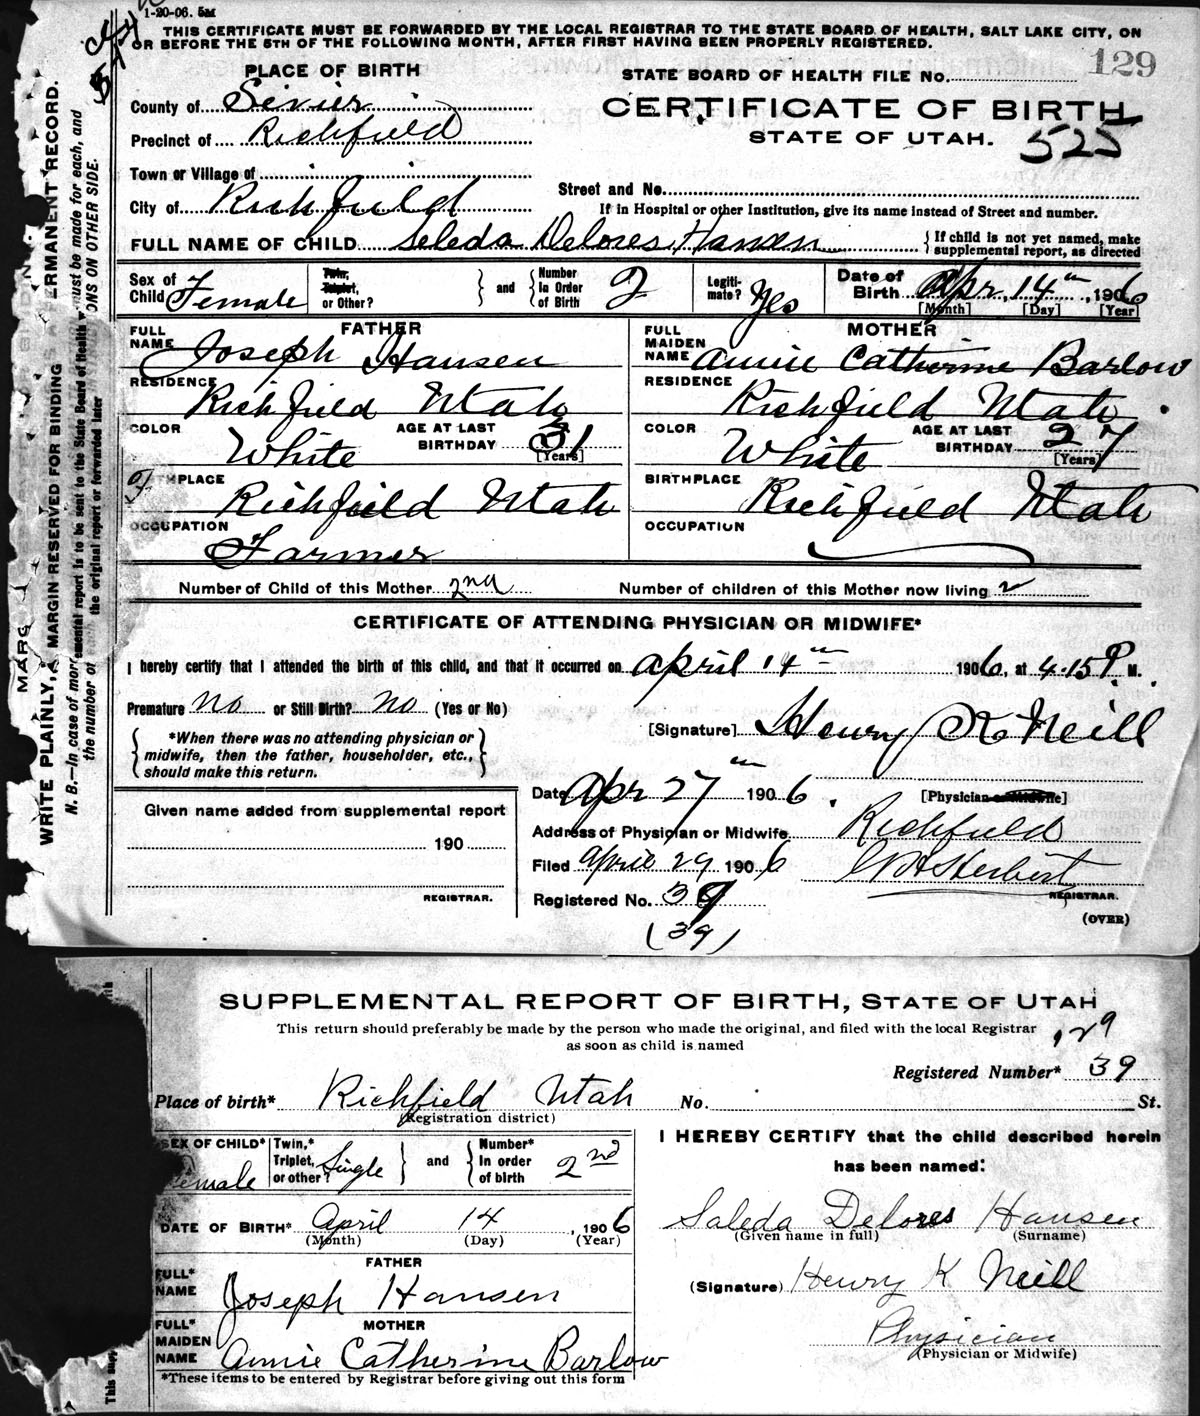 1-20-06. 5M
THIS CERTIFICATE MUST BE FORWARDED BY THE LOCAL REGISTRAR TO THE STATE BOARD OF HEALTH, SALT LAKE CITY, ON
OR BEFORE THE 5TH OF THE FOLLOWING MONTH, AFTER FIRST HAVING BEEN PROPERLY REGISTERED.
129
PLACE OF BIRTH
STATE BOARD OF HEALTH FILE No.
County of Sevier
CERTIFICATE OF BIRTH
Precinct of Richfield
STATE OF UTAH.
525
Town or Village of
Street and No.
City of Richfield
If in Hospital or other Institution, give its name instead of Street and number.
FULL NAME OF CHILD Seleda Delores Hansen
If child is not yet named, make
supplemental report, as directed
Sex of Child Female
Twin, Triplet, or Other?
and
Number In Order of Birth 2
Legiti-mate? Yes
Date of Birth Apr, 14th, 1906
[Month] [Day] [Year]
FATHER
FULL NAME Joseph Hansen
RESIDENCE Richfield Utah
COLOR White
AGE AT LAST BIRTHDAY 31
[Years]
THPLACE Richfield Utah
OCCUPATION Farmer
MOTHER
FULL MAIDEN NAME Annie Catherine Barlow
RESIDENCE Richfield Utah.
COLOR White
AGE AT LAST BIRTHDAY 27
[Years]
BIRTHPLACE Richfield Utah
OCCUPATION
Number of Child of this Mother 2nd
Number of children of this Mother now living 2
CERTIFICATE OF ATTENDING PHYSICIAN OR MIDWIFE*
I hereby certify that I attended the birth of this child, and that it occurred on April 14th 1906, at 4.15 P. M.
Premature No or Still Birth? No (Yes or No)
[Signature] Henry K Neill
*When there was no attending physician or
midwife, then the father, householder, etc.,
should make this return.
Date Apr 27th 1906.
[Physician or Midwife]
Given name added from supplemental report
190
REGISTRAR.
Address of Physician or Midwife Richfield
Filed April 29 1906
Herbert
REGISTRAR.
Registered No. 39
(39)
(OVER)
WRITE PLAINLY, A MARGIN RESERVED FOR BINDING ERMANENT RECORD.
N. B.—In case of more emental report is to be sent to the State Board of Health must be made for each, and
the number of the original report or forwarded later ONS ON OTHER SIDE.
SUPPLEMENTAL REPORT OF BIRTH, STATE OF UTAH
This return should preferably be made by the person who made the original, and filed with the local Registrar
as soon as child is named
129
Registered Number* 39
Place of birth* Richfield Utah No. St.
(Registration district)
SEX OF CHILD* Female
Twin,* Triplet, or other? Single
and
Number* In order of birth 2nd
DATE OF BIRTH* April 14, 1906
(Month) (Day) (Year)
FATHER
FULL* NAME Joseph Hansen
MOTHER
FULL* MAIDEN NAME Annie Catherine Barlow
*These items to be entered by Registrar before giving out this form
I HEREBY CERTIFY that the child described herein
has been named:
Saleda Delores Hansen
(Given name in full) (Surname)
(Signature) Henry K Neill
Physician
(Physician or Midwife)